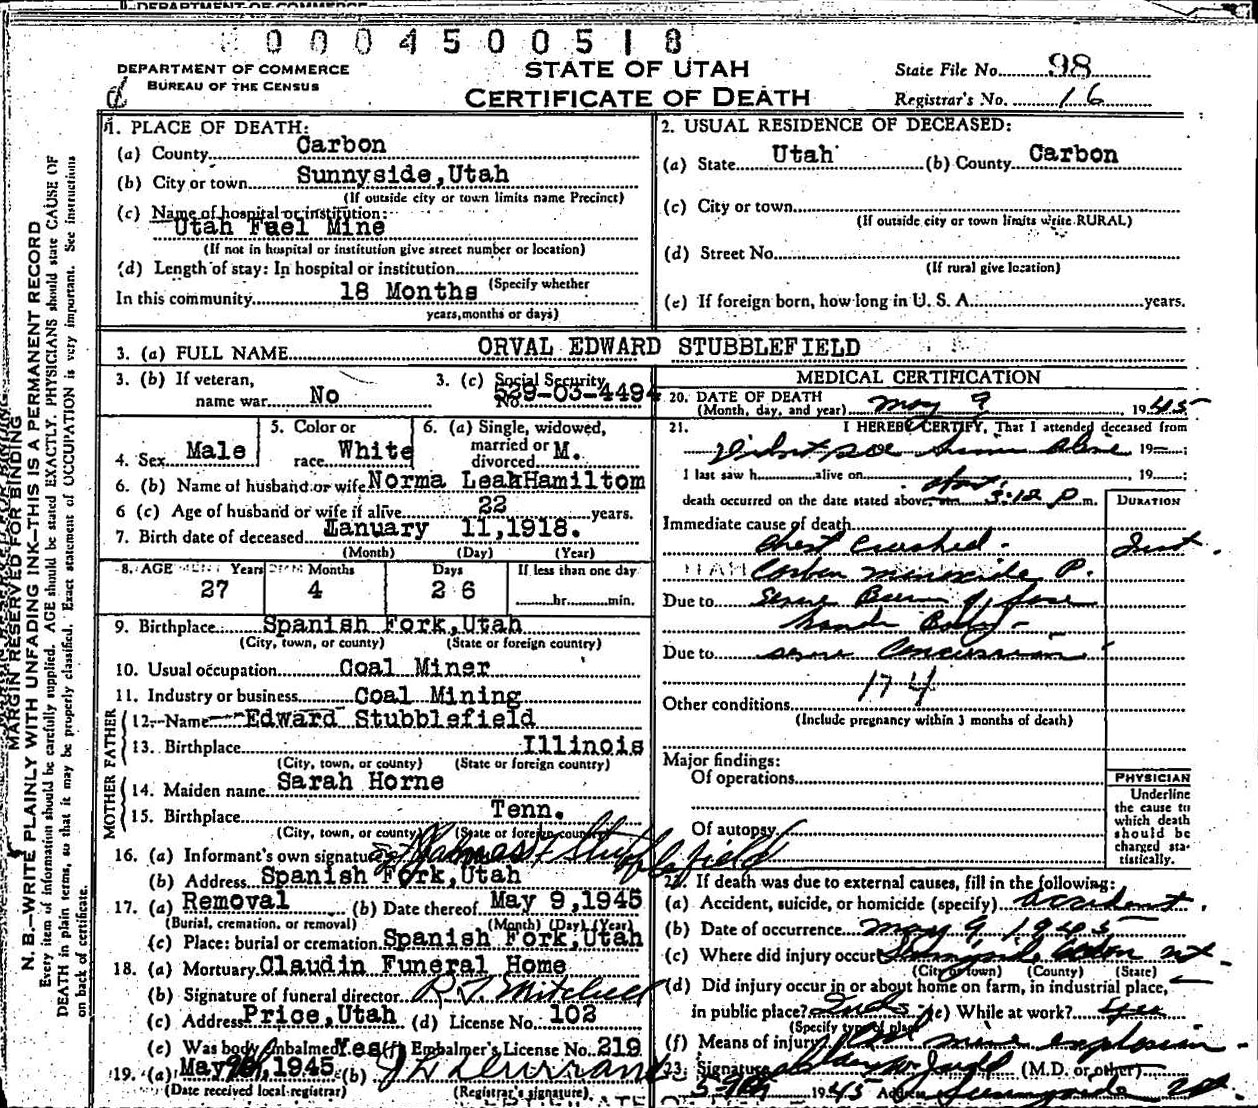 DEPARTMENT OF COMMERCE
0004500518
DEPARTMENT OF COMMERCE
BUREAU OF THE CENSUS
STATE OF UTAH
CERTIFICATE OF DEATH
State File No. 98
Registrar's No. 16
MARGIN RESERVED FOR BINDING
N. B.—WRITE PLAINLY WITH UNFADING INK—THIS IS A PERMANENT RECORD
Every item of information should be carefully supplied. AGE should be stated EXACTLY. PHYSICIANS should state CAUSE OF
DEATH in plain terms, so that it may be properly classified. Exact statement of OCCUPATION is very important. See instructions
on back of certificate.
1. PLACE OF DEATH:
(a) County Carbon
(b) City or town Sunnyside,Utah
(If outside city or town limits name Precinct)
(c) Name of hospital or institution:
Utah Fuel Mine
(If not in hospital or institution give street number or location)
(d) Length of stay: In hospital or institution
(Specify whether
In this community 18 Months
years, months or days)
2. USUAL RESIDENCE OF DECEASED:
(a) State Utah (b) County Carbon
(c) City or town
(If outside city or town limits write RURAL)
(d) Street No.
(If rural give location)
(e) If foreign born, how long in U. S. A. years.
3. (a) FULL NAME ORVAL EDWARD STUBBLEFIELD
3. (b) If veteran,
name war No
3. (c) Social Security
No. 529-03-4494
4. Sex Male
5. Color or
race White
6. (a) Single, widowed,
married or
divorced M.
6. (b) Name of husband or wife Norma Leah Hamilton
6 (c) Age of husband or wife if alive 22 years.
7. Birth date of deceased January 11,1918.
(Month) (Day) (Year)
8. AGE Years Months Days If less than one day
27 4 26 hr. min.
9. Birthplace Spanish Fork,Utah
(City, town, or county) (State or foreign country)
10. Usual occupation Coal Miner
11. Industry or business Coal Mining
FATHER
12. Name Edward Stubblefield
13. Birthplace Illinois
(City, town, or county) (State or foreign country)
MOTHER
14. Maiden name Sarah Horne
15. Birthplace Tenn.
(City, town, or county) (State or foreign country)
16. (a) Informant's own signature Stubblefield
(b) Address Spanish Fork,Utah
17. (a) Removal (b) Date thereof May 9,1945
(Burial, cremation, or removal) (Month) (Day) (Year)
(c) Place: burial or cremation Spanish Fork,Utah
18. (a) Mortuary Claudin Funeral Home
(b) Signature of funeral director R T Mitchell
(c) Address Price,Utah (d) License No. 102
(e) Was body embalmed? Yes (f) Embalmer's License No. 219
19. (a) May 1945 (b)
(Date received local registrar) (Registrar's signature)
MEDICAL CERTIFICATION
20. DATE OF DEATH
(Month, day, and year) May 9 1945
21. I HEREBY CERTIFY, That I attended deceased from
Didnt see him alive 19
I last saw h alive on 19
death occurred on the date stated above, at 3:12 P m.
DURATION
Immediate cause of death
Chest Crushed. Inst.
Carbon Monoxide P.
Due to Severe Burn of face
hands Body
Due to severe Concussion
174
Other conditions
(Include pregnancy within 3 months of death)
Major findings:
Of operations
Of autopsy
PHYSICIAN
Underline
the cause to
which death
should be
charged sta-
tistically.
22. If death was due to external causes, fill in the following:
(a) Accident, suicide, or homicide (specify) accident.
(b) Date of occurrence May 9 1945
(c) Where did injury occur? Sunnyside Carbon Ut
(City or town) (County) (State)
(d) Did injury occur in or about home on farm, in industrial place,
in public place? Inds (e) While at work? yes
(Specify type of place)
(f) Means of injury mine explosion
23. Signature (M.D. or other)
1945 Address Sunnyside Ut.